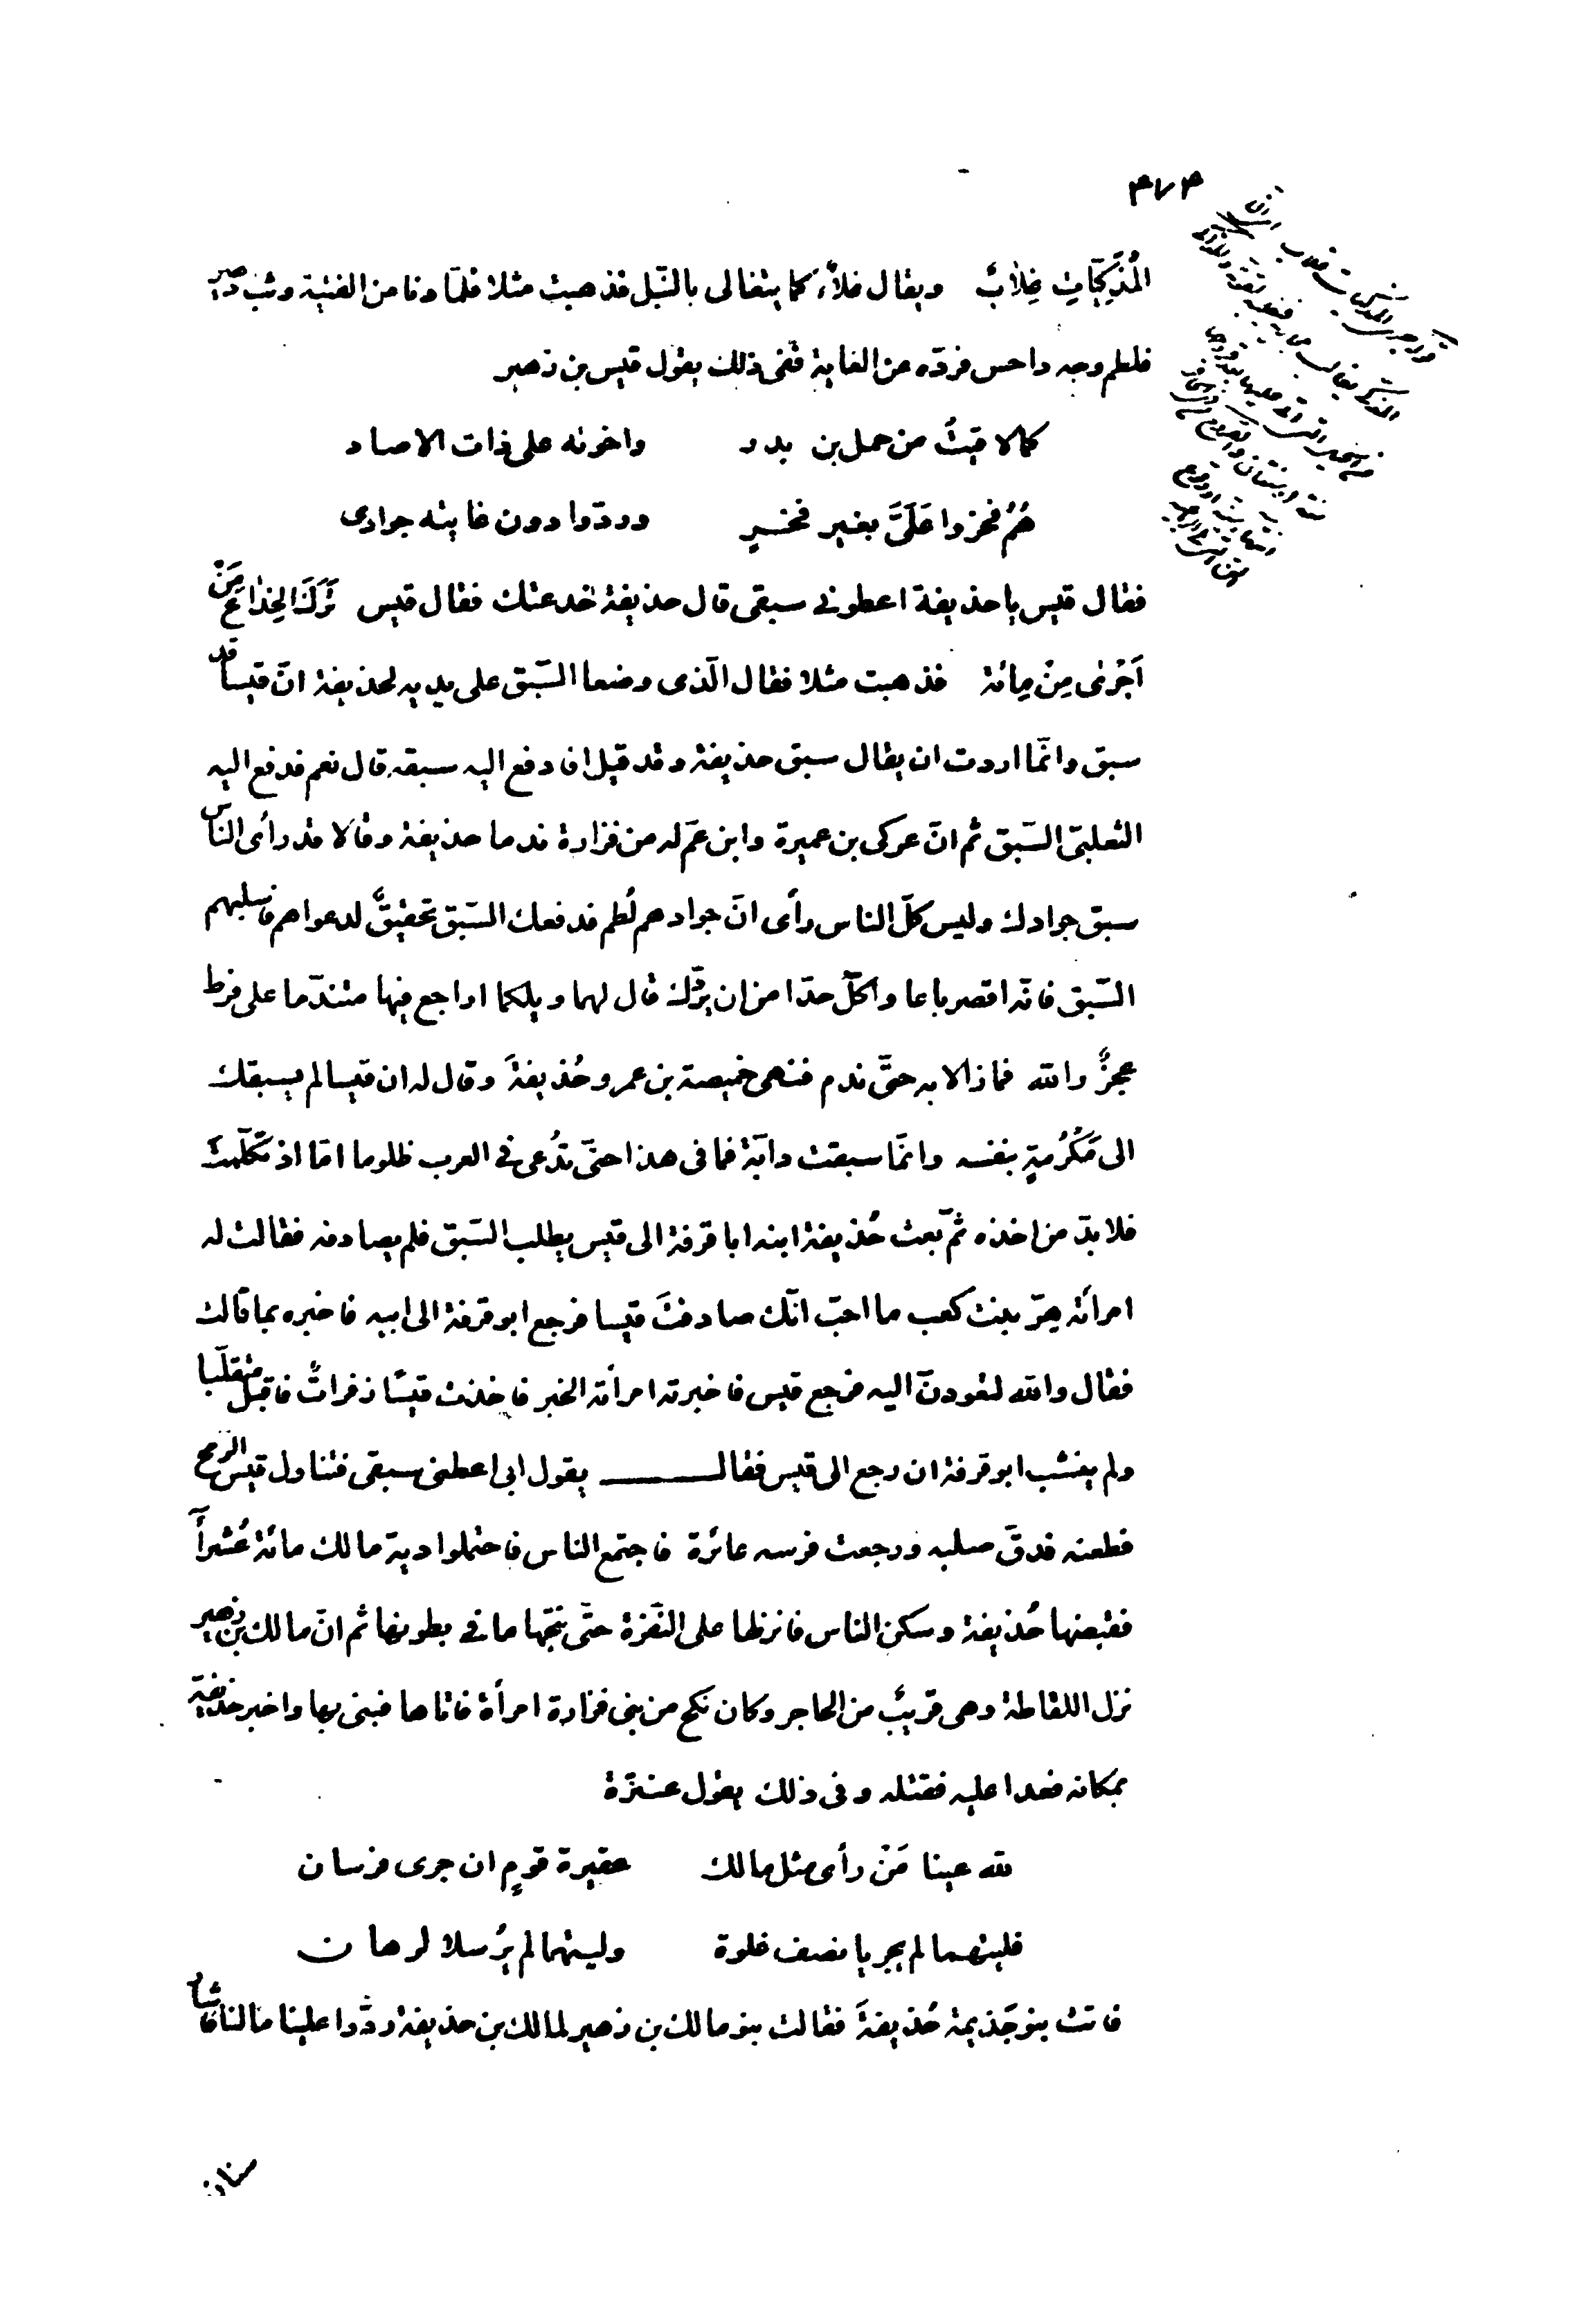 ٤٧٤
المُذَكِّيَاتِ غِلَابٌ ويقال غلاءٌ كما يتغالى بالنّبل فذهبت مثلا فلمّا دنا من الفئية وثب زهير
فلطم وجه داحس فردّه عن الغاية ففى ذلك يقول قيس بن زهير
كما لاقيتُ من حمل بن بدر واخوته على ذات الاصاد
هُمُ فخروا عَلَىَّ بغير فخرٍ وردّوا دون غايته جوادى
فقال قيس يا حذيفة اعطونى سبقى قال حذيفة خدعتك فقال قيس تَرَكَ الخِدَاعَ مَنْ
اَجْرٰى مِنْ مِائة فذهبت مثلا فقال الّذى وضعا السَّبق على يديه لحذيفة انّ قيسا قد
سبق وانّما اردت ان يقال سبق حذيفة وقد قيل افادفع اليه سبقه قال نعم فدفع اليه
الثعلبىّ السّبق ثم انّ عركى بن عميرة وابن عمّ له من فزارة ندما حذيفة وقالا قد رأى الناس
سبق جوادك وليس كلّ الناس رأى انّ جوادهم لُطم فدفعك السّبق تحقيقٌ لدعواهم فاسلبهم
السّبق فانّه اقصر باعا واكلّ حدّا من ان يردّك قال لهما ويلكما اراجع فيها متندّما على فرط
عجزٌ والله فما زالا به حتّى ندم فنهى خميصة بن عمرو حُذيفةَ وقال له ان قيسا لم يسبقك
الى مَكْرُمةٍ بنفسه وانّما سبقت دابّة دابّة فما فى هذا حتّى تُدعى فى العرب ظلوما امّا اذ تكلّمتَ
فلا بدّ من اخذه ثمّ بعث حُذيفة ابنه ابا قرفة الى قيس يطلب السّبق فلم يصادفه فقالت له
امرأته هِرّ بنت كعب ما احبّ انّك صادفتَ قيسا فرجع ابو قرفة الى ابيه فاخبره بما قالت
فقال والله لتعودنّ اليه فرجع قيس فاخبرته امرأته الخبر فاخذت قيسًا زفراتٌ فاقبل متقلّبا
ولم ينشب ابو قرفة ان رجع الى قيس فقال يقول ابى اعطنى سبقى فتناول قيس الرمح
فطعنه فدقّ صلبه ورجعت فرسه عائرة فاجتمع الناس فاحتملوا دية مالك مائة عُشَرآءَ
فقبضها حُذيفة وسكن الناس فانزلها على النّفرة حتّى نتجها ما فى بطونها ثم انّ مالك بن زهير
نزل اللقاطة وهى قريبٌ من الحاجر وكان نكح من بنى فزارة امرأة فاتاها فبنى بها واخبر حذيفة
بمكانه فعدا عليه فقتله وفى ذلك يقول عنترة
لله عينا مَنْ رأى مثل مالك عقيرة قومٍ ان جرى فرسان
فليتهما لم يجريا نصف غلوة وليتهما لم يُرْسلا لرهان
فاتت بنو جَذيمة حُذيفةَ فقالت بنو مالك بن زهير لمالك بن حذيفة ردّوا علينا مالنا فاشار
سنان